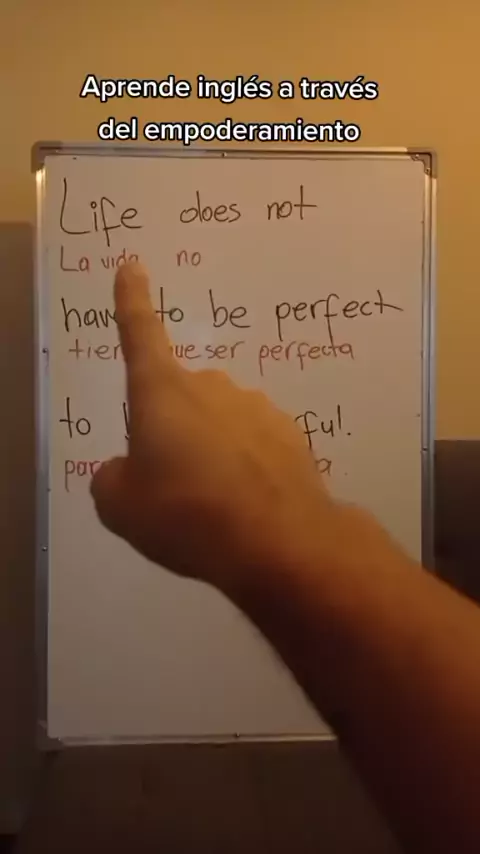 Aprende inglés a través
del empoderamiento
Life does not
La vida no
to be perfect
ser perfecta
to